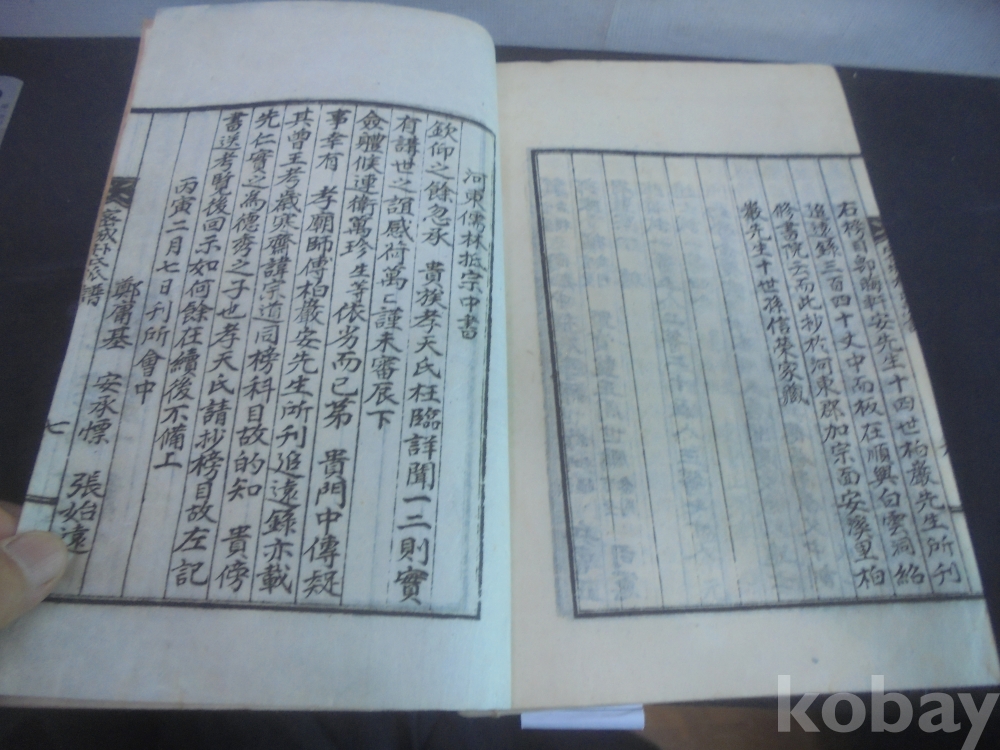 右榜目卽胸軒安先生十四世柏巖先生所刊
追遠錄三百四十丈中而板在順興白雲洞紹
修書院云而此抄於河東郡加宗面安溪里柏
巖先生十世孫信菜家藏
河東儒林抵宗中書
欽仰之餘忽承 貴族孝天氏枉臨詳聞一二則實
有講世之誼感荷萬〻謹未審辰下
僉體候連衛萬珍生等依劣而已第 貴門中傳疑
事幸有 孝廟師傅柏巖安先生所刊追遠錄亦載
其曾王考歲寒齋諱宗道同榜科目故的知 貴傍
先仁實之爲德秀之子也孝天氏請抄榜目故左記
書送考覽後回示如何餘在續後不備上
丙寅二月七日刊所會中
鄭庸基 安承慓 張始遠
七
kobay